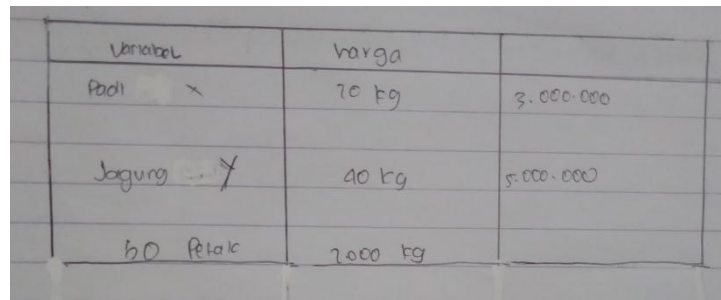 Variabel harga
Padi x 20 kg 3.000.000
Jagung y 40 kg 5.000.000
50 Petak 2000 kg